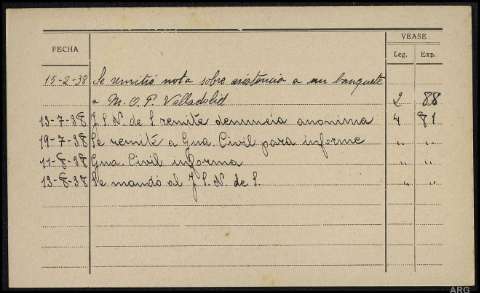 FECHA
VEASE
Leg. Exp.
15-2-38 Se remitió nota sobre asistencia a un banquete
a M.O.P. Valladolid 2 88
13-7-38 J.S.N. de S remite denuncia anonima 4 81
19-7-38 Se remite a Gua. Civil para informe " "
11-8-38 Gua. Civil informa " "
13-8-38 Se mandó al J.S.N. de S. " "
ARG